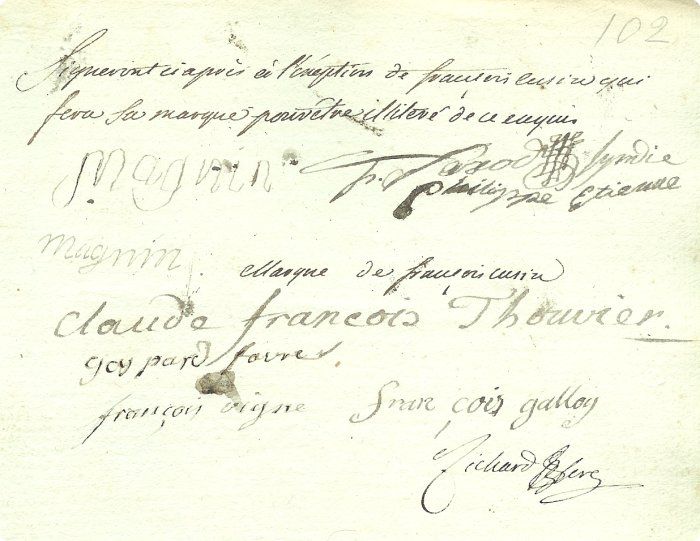 102
Signeront ci après à l'éxéption de françois cusin qui
fera sa marque pour être illiteré de ce enquis
Magnin
syndic
philippe Etienne
magnin
Marque de françois cusin
claude françois Thouvier
favre
françois vigne françois galloy
Richard